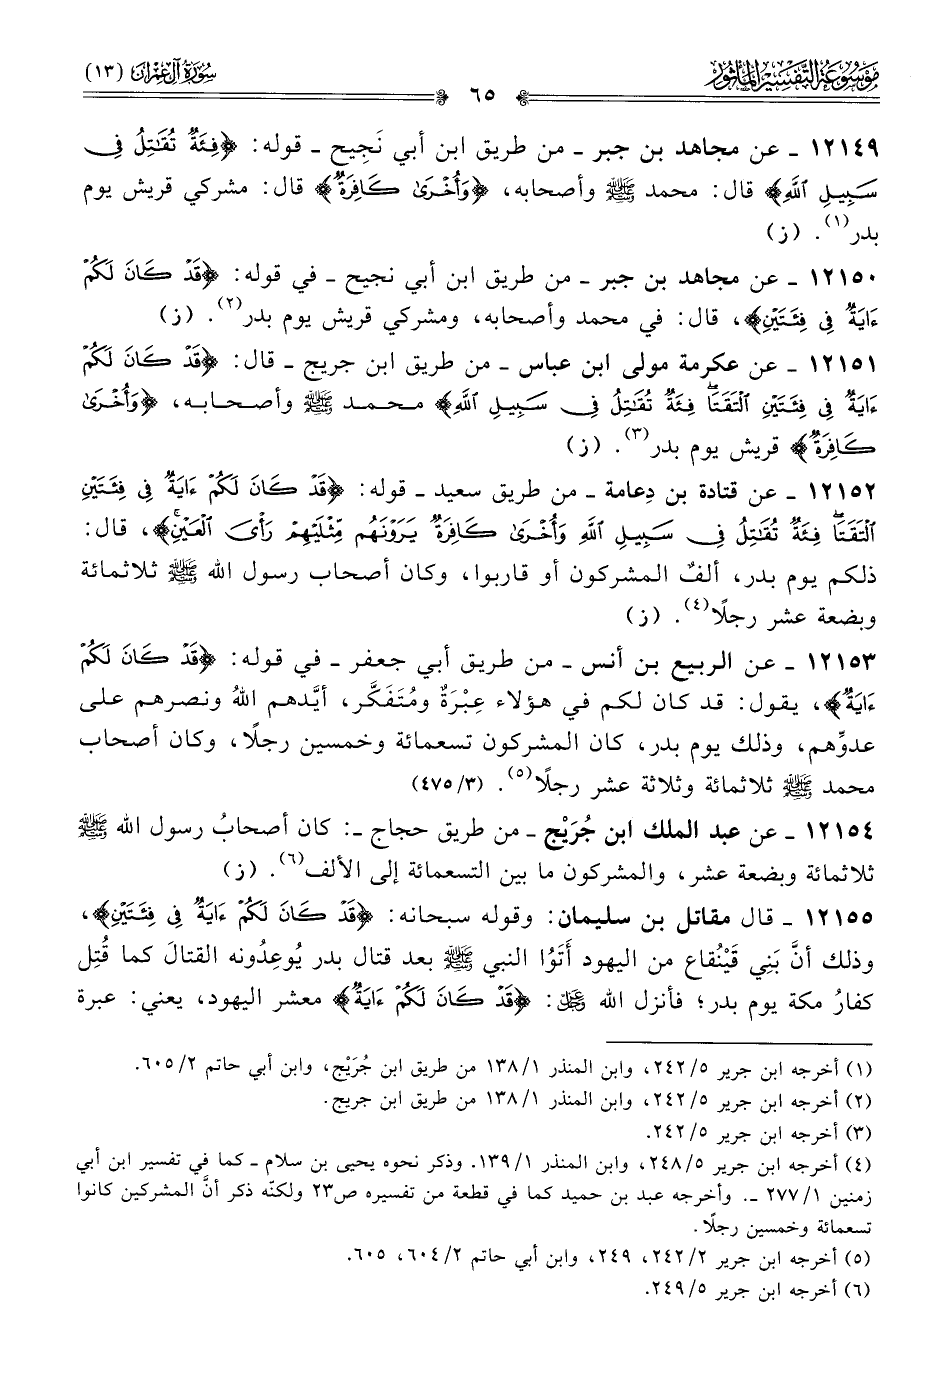 مَوْسُوعَةُ التَّفْسِيرِ المَأْثُورِ
٦٥
سُورَةُ آلِ عِمْرَانَ (١٣)
١٢١٤٩ ـ عن مجاهد بن جبر ـ من طريق ابن أبي نَجِيح ـ قوله: ﴿فِئَةٌ تُقَٰتِلُ فِى
سَبِيلِ ٱللَّهِ﴾ قال: محمد ﷺ وأصحابه، ﴿وَأُخْرَىٰ كَافِرَةٌ﴾ قال: مشركي قريش يوم
بدر(١). (ز)
١٢١٥٠ ـ عن مجاهد بن جبر ـ من طريق ابن أبي نجيح ـ في قوله: ﴿قَدْ كَانَ لَكُمْ
ءَايَةٌ فِى فِئَتَيْنِ﴾، قال: في محمد وأصحابه، ومشركي قريش يوم بدر(٢). (ز)
١٢١٥١ ـ عن عكرمة مولى ابن عباس ـ من طريق ابن جريج ـ قال: ﴿قَدْ كَانَ لَكُمْ
ءَايَةٌ فِى فِئَتَيْنِ ٱلْتَقَتَاۖ فِئَةٌ تُقَٰتِلُ فِى سَبِيلِ ٱللَّهِ﴾ محمد ﷺ وأصحابه، ﴿وَأُخْرَىٰ
كَافِرَةٌ﴾ قريش يوم بدر(٣). (ز)
١٢١٥٢ ـ عن قتادة بن دِعامة ـ من طريق سعيد ـ قوله: ﴿قَدْ كَانَ لَكُمْ ءَايَةٌ فِى فِئَتَيْنِ
ٱلْتَقَتَاۖ فِئَةٌ تُقَٰتِلُ فِى سَبِيلِ ٱللَّهِ وَأُخْرَىٰ كَافِرَةٌ يَرَوْنَهُم مِّثْلَيْهِمْ رَأْىَ ٱلْعَيْنِۚ﴾، قال:
ذلكم يوم بدر، ألفٌ المشركون أو قاربوا، وكان أصحاب رسول الله ﷺ ثلاثمائة
وبضعة عشر رجلًا(٤). (ز)
١٢١٥٣ ـ عن الربيع بن أنس ـ من طريق أبي جعفر ـ في قوله: ﴿قَدْ كَانَ لَكُمْ
ءَايَةٌ﴾، يقول: قد كان لكم في هؤلاء عِبْرَةٌ ومُتَفَكَّر، أيَّدهم اللهُ ونصرهم على
عدوِّهم، وذلك يوم بدر، كان المشركون تسعمائة وخمسين رجلًا، وكان أصحاب
محمد ﷺ ثلاثمائة وثلاثة عشر رجلًا(٥). (٤٧٥/٣)
١٢١٥٤ ـ عن عبد الملك ابن جُرَيْج ـ من طريق حجاج ـ: كان أصحابُ رسول الله ﷺ
ثلاثمائة وبضعة عشر، والمشركون ما بين التسعمائة إلى الألف(٦). (ز)
١٢١٥٥ ـ قال مقاتل بن سليمان: وقوله سبحانه: ﴿قَدْ كَانَ لَكُمْ ءَايَةٌ فِى فِئَتَيْنِ﴾،
وذلك أنَّ بَنِي قَيْنُقاع من اليهود أَتَوُا النبي ﷺ بعد قتال بدر يُوعِدُونه القتالَ كما قُتِل
كفارُ مكة يوم بدر؛ فأنزل الله ﷻ: ﴿قَدْ كَانَ لَكُمْ ءَايَةٌ﴾ معشر اليهود، يعني: عبرة
(١) أخرجه ابن جرير ٢٤٢/٥، وابن المنذر ١٣٨/١ من طريق ابن جُرَيْج، وابن أبي حاتم ٦٠٥/٢.
(٢) أخرجه ابن جرير ٢٤٢/٥، وابن المنذر ١٣٨/١ من طريق ابن جريج.
(٣) أخرجه ابن جرير ٢٤٢/٥.
(٤) أخرجه ابن جرير ٢٤٨/٥، وابن المنذر ١٣٩/١. وذكر نحوه يحيى بن سلام ـ كما في تفسير ابن أبي
زمنين ٢٧٧/١ ـ. وأخرجه عبد بن حميد كما في قطعة من تفسيره ص٢٣ ولكنّه ذكر أنَّ المشركين كانوا
تسعمائة وخمسين رجلًا.
(٥) أخرجه ابن جرير ٢٤٢/٢، ٢٤٩، وابن أبي حاتم ٦٠٤/٢، ٦٠٥.
(٦) أخرجه ابن جرير ٢٤٩/٥.